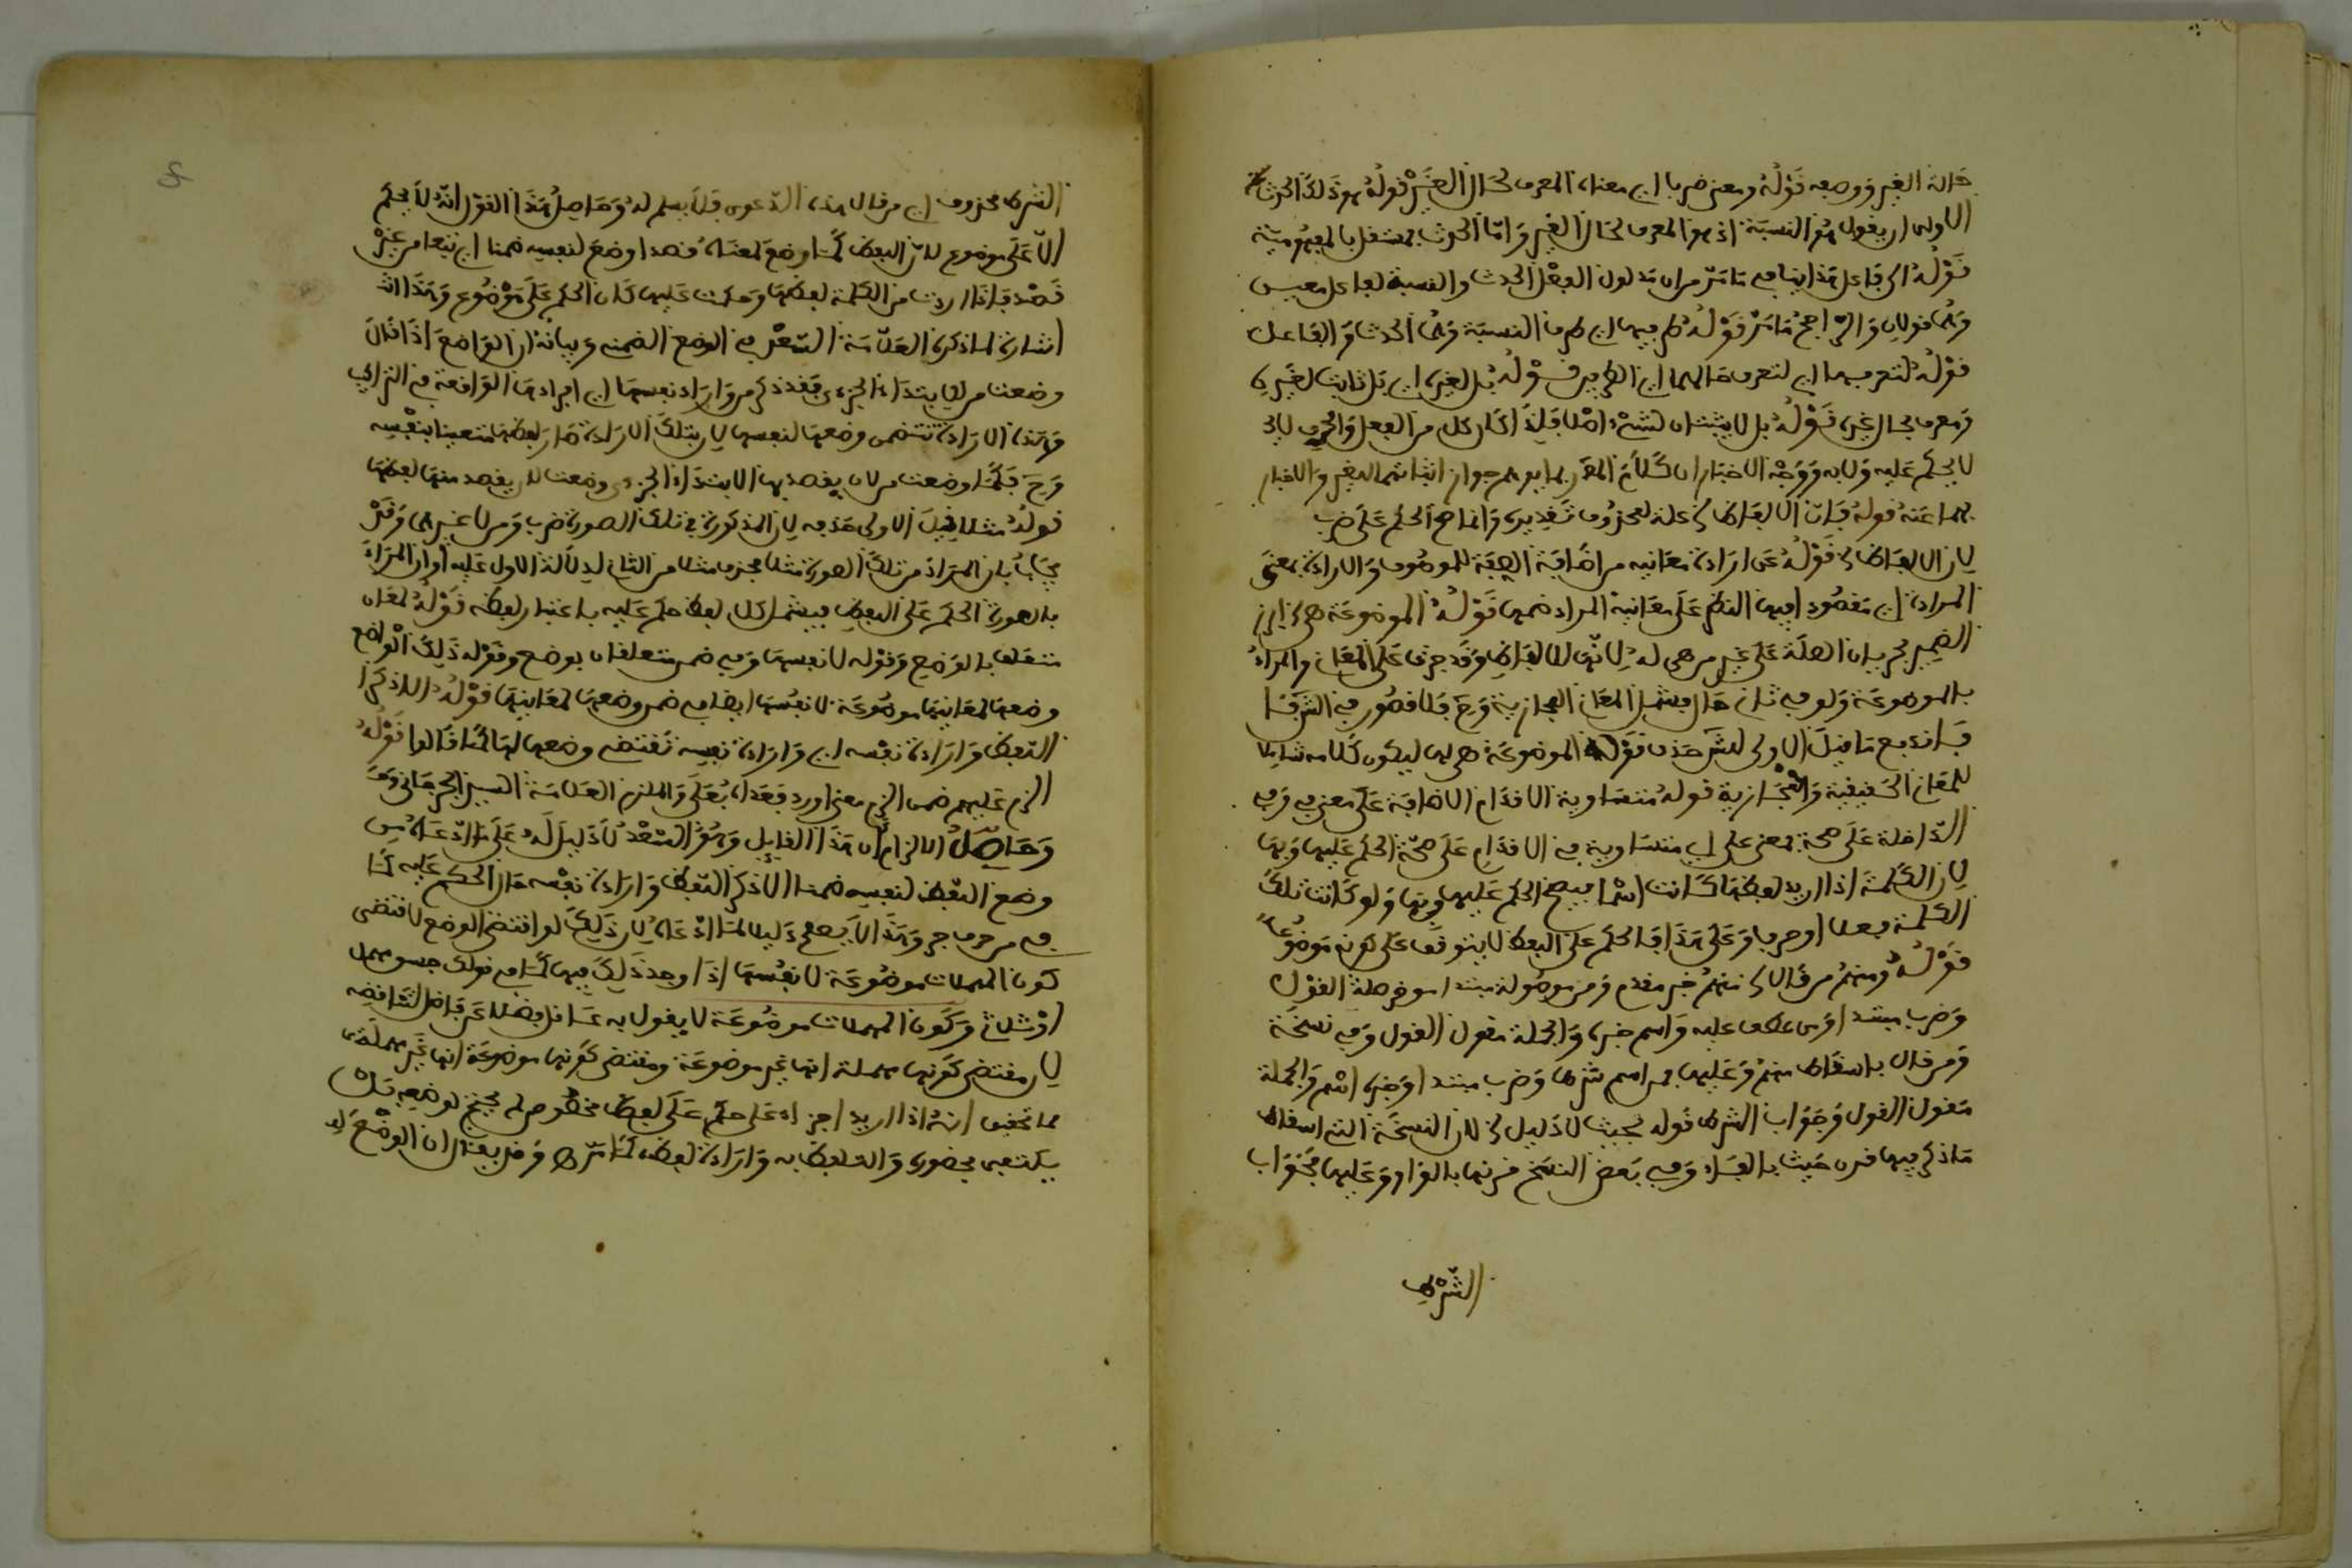 حالة الغير ووصفه قوله ومعنى ضرب اي معناه المعرف لحال الغير قوله هو ذلك الحرف
الاولى ان يقول هو النسبة اذ هو المعرف لحال الغير واما الحدث فمستقل بالمفهومية
قوله الى فاعل هذا ينافي ما مر من ان مدلول الفعل الحدث والنسبة لفاعل معين
وهما قولان والراجح ما مر قوله طرفيها اي طرفا النسبة وهما الحدث والفاعل
قوله لتعرف بها اي لتعرف حالهما اي الطرفين قوله بل لغيره اي بل ثابت لغيره
ومعرف بحال غيره قوله بل لا يثبتان لشيء اصلا فلذا كان كل من الفعل والحرف لا
لا يحكم عليه ولا به ووجه الاخبار ان كلام المص ربما يوهم جواز اثباتهما للغير والاخبار
بهما عنه قوله فان الالفاظ الخ علة لمحذوف تقديره وانما صح الحكم على ضرب
لان الالفاظ الخ قوله عن ارادة معانيه من اضافة الصفة للموصوف والارادة بمعنى
المرادة اي مقصودا فيها النظر على معانيه المراد فهمها قوله الموضوعة هي اي ابرز
الضمير لجريان الصلة على غير من هي له لانها للالفاظ وقد جرت على المعاني والمراد
بالموضوعة ولو في ثاني حال فيشمل المعاني المجازية وح فلا قصور في الشرفـ
فاندفع ما قيل الاولى للش حذف قوله الموضوعة هي لها ليكون كلامه شاملا
للمعاني الحقيقية والمجازية قوله متساوية الاقدام الاضافة على معنى في وفي
الداخلة على صحة بمعنى على اي متساوية في الاقدام على صحة الحكم عليها وبها
لان الكلمة اذا اريد لفظها كانت اسما فيصح الحكم عليها وبها ولو كانت تلك
الكلمة فعلا او حرفا وعلى هذا فالحكم على اللفظ لا يتوقف على كونه موضوعا
قوله ومنهم من قال الخ منهم خبر مقدم ومن موصولة مبتدا موخر صلة القول
وضرب مبتدا ومن عطف عليه واسم خبره والجملة مقول القول وفي نسخة
ومن قال باسقاط منهم وعليها فمن اسم شرط وضرب مبتدا وخبره اسم والجملة
مقول القول وجواب الشرط قوله فحيث لا دليل الخ لان النسخة التي اسقاط
ما ذكر فيها قرن حيث بالفاء وفي بعض النسخ قرنها بالواو وعليها فجواب
الشرط
الشرط محذوف اي من قال هذه الدعوى فلا يسلم له وحاصل هذا القول انه لا يحكم
الا على موضوع لان اللفظ كما وضع لمعناه قصدا وضع لنفسه ضمنا اي تبعا من غير
قصد فاذا اردت من الكلمة لفظها وحكمت عليها كان الحكم على موضوع وهذا اشـ
اشارة لما ذكره العلامة السعد في الوضع الضمني وبيانه ان الواضع اذا قال
وضعت من لابتداء الجزءى فقد ذكر من واراد نفسها اي افرادها الواقعة في التراكيب
وهذه الارادة تتضمن وضعها لنفسها لان بتلك الارادة صار لفظها متعينا بنفسه
وح فكما وضعت من لان يقصد بها الابتداء الجزءي وضعت لان يقصد منها لفظها
قوله مثلا قيل الاولى حذفه لان المذكورة في تلك الصورة ضرب ومن لا غيرهما وقد
يجاب بان المراد من تلك الصورة مثلا فحذف مثلا من الثاني لدلالة الاول عليه او ان المراد
بالصورة الحكم على اللفظ فيشمل كل لفظ حكم عليه باعتبار لفظه قوله لمعان
متعلق بالوضع وقوله لانفسها وفي ضمن متعلقان بوضع وقوله ذلك الوضع
وضعها لمعانيها موضوعة لانفسها ايضا في ضمن وضعها لمعانيها قوله الا ذكر
اللفظ وارادة نفسه اي وارادة نفسه تقتضي وضعها لها كما قالوا قوله
الزم عليهم ضمن الزم معنى اورد فعداه بعلى والملزم العلامة السيد الجرجاني وهـ
وحاصل الالزام ان هذا القايل وهو السعد لا دليل له على ما ادعاه من
وضع اللفظ لنفسه ضمنا الا ذكر اللفظ وارادة نفسه حال الحكم عليه كما
في من حرف جر وهذا لا يصلح دليلا لما ادعاه لان ذلك لو اقتضى الوضع لاقتضى
كون المهملات موضوعة لانفسها اذا وجد ذلك فيها كما في قولك جسق مهمل
او ثلاثي وكون المهملات موضوعة لا يقول به عاقل فضلا عن فاضل لتناقضه
لان مقتضى كونها مهملة انها غير موضوعة ومقتضى كونها موضوعة انها غير مهملة
فما تحقيق انه اذا اريد اجراء على حكم على لفظ مخصوص لم يحتج لوضعه بل
يكتفى بحضوره والتلفظ به وارادة لفظه كما مر وقد يقال ان الوضع